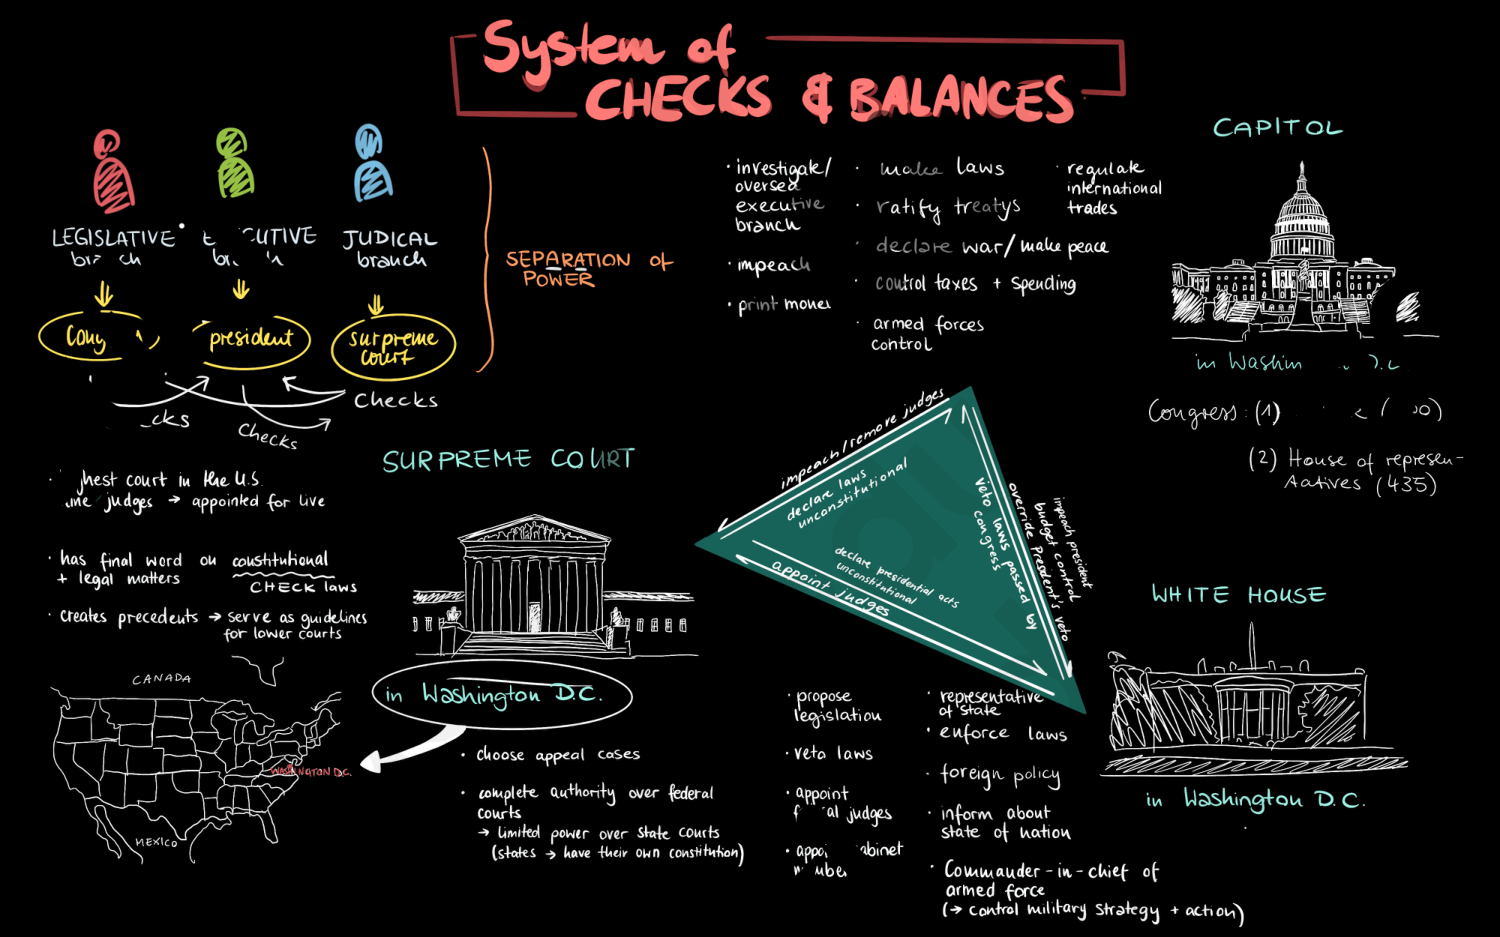 System of
CHECKS & BALANCES
LEGISLATIVE
JUDICAL
branch
president
surpreme
court
Checks
Checks
SEPARATION of
POWER
· investigate/
oversea
executive
branch
· impeach
· print
· make laws
· ratify treatys
· declare war/make peace
· control taxes + spending
· armed forces
control
· regulate
international
trades
CAPITOL
in
Congress: (1)
(2) House of represen-
tatives (435)
court in the U.S.
judges → appointed for live
· has final word on constitutional
+ legal matters
CHECK laws
· creates precedents → serve as guidelines
for lower courts
SURPREME COURT
in Washington D.C.
CANADA
WASHINGTON D.C.
MEXICO
· choose appeal cases
· complete authority over federal
courts
→ limited power over state courts
(states → have their own constitution)
impeach/remove judges
declare laws
unconstitutional
declare presidential acts
unconstitutional
appoint judges
veto laws passed by
congress
impeach president
budget control
override President's veto
WHITE HOUSE
in Washington D.C.
· propose
legislation
· veta laws
· appoint
judges
· representative
of state
· enforce laws
· foreign policy
· inform about
state of nation
· Commander-in-chief of
armed force
(→ control military strategy + action)